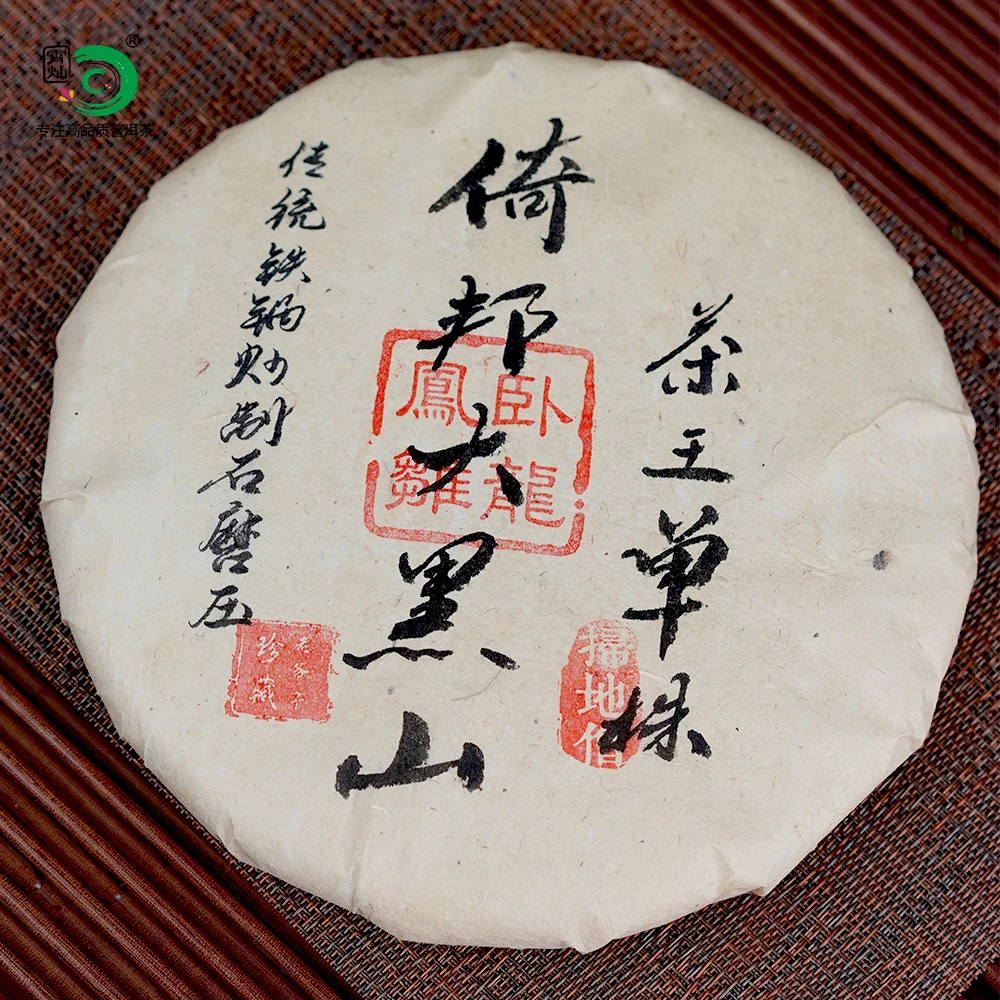 霄灿
®
专注高品质普洱茶
茶王单株
倚邦大黑山
传统铁锅炒制石磨压
卧龍
鳳雛
掃地伯
老爷子
珍藏